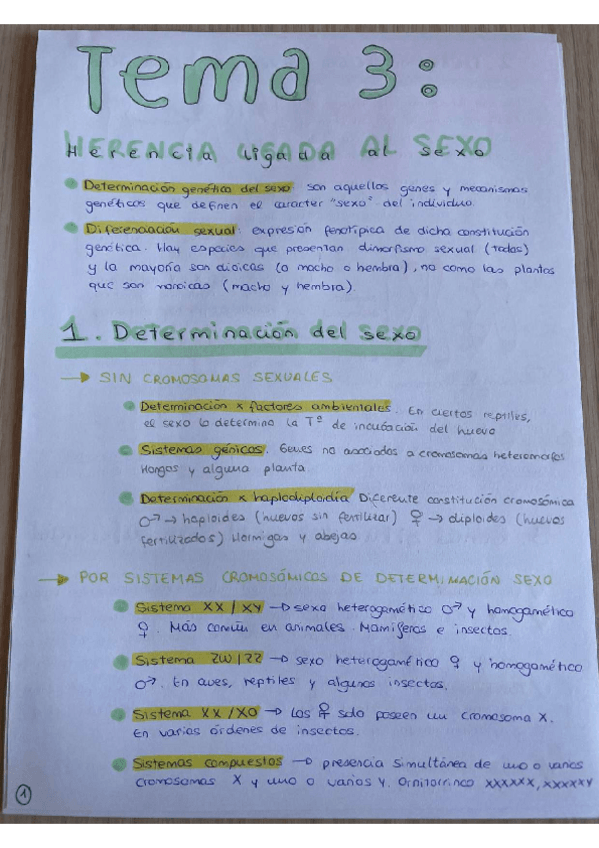 Tema 3:
HERENCIA LIGADA AL SEXO
Determinación genética del sexo: son aquellos genes y mecanismos
genéticos que definen el carácter "sexo" del individuo.
Diferenciación sexual: expresión fenotípica de dicha constitución
genética. Hay especies que presentan dimorfismo sexual (todos)
y la mayoría son dioicas (o macho o hembra), no como las plantas
que son monoicas (macho y hembra).
1. Determinación del sexo
→ SIN CROMOSOMAS SEXUALES
Determinación x factores ambientales. En ciertos reptiles,
el sexo lo determina la Tª de incubación del huevo
Sistemas génicos. Genes no asociados a cromosomas heteromorfos
Hongos y alguna planta.
Determinación x haplodiploidía Diferente constitución cromosómica
♂ → haploides (huevos sin fertilizar) ♀ → diploides (huevos
fertilizados) Hormigas y abejas
→ POR SISTEMAS CROMOSÓMICOS DE DETERMINACIÓN SEXO
Sistema XX / XY → sexo heterogamético ♂ y homogamético
♀. Más común en animales. Mamíferos e insectos.
Sistema ZW / ZZ → sexo heterogamético ♀ y homogamético
♂. En aves, reptiles y algunos insectos.
Sistema XX / XO → Los ♀ solo poseen un cromosoma X.
En varios órdenes de insectos.
Sistemas compuestos → presencia simultánea de uno o varios
cromosomas X y uno o varios Y. Ornitorrinco XXXXXX, XXXXXY
1